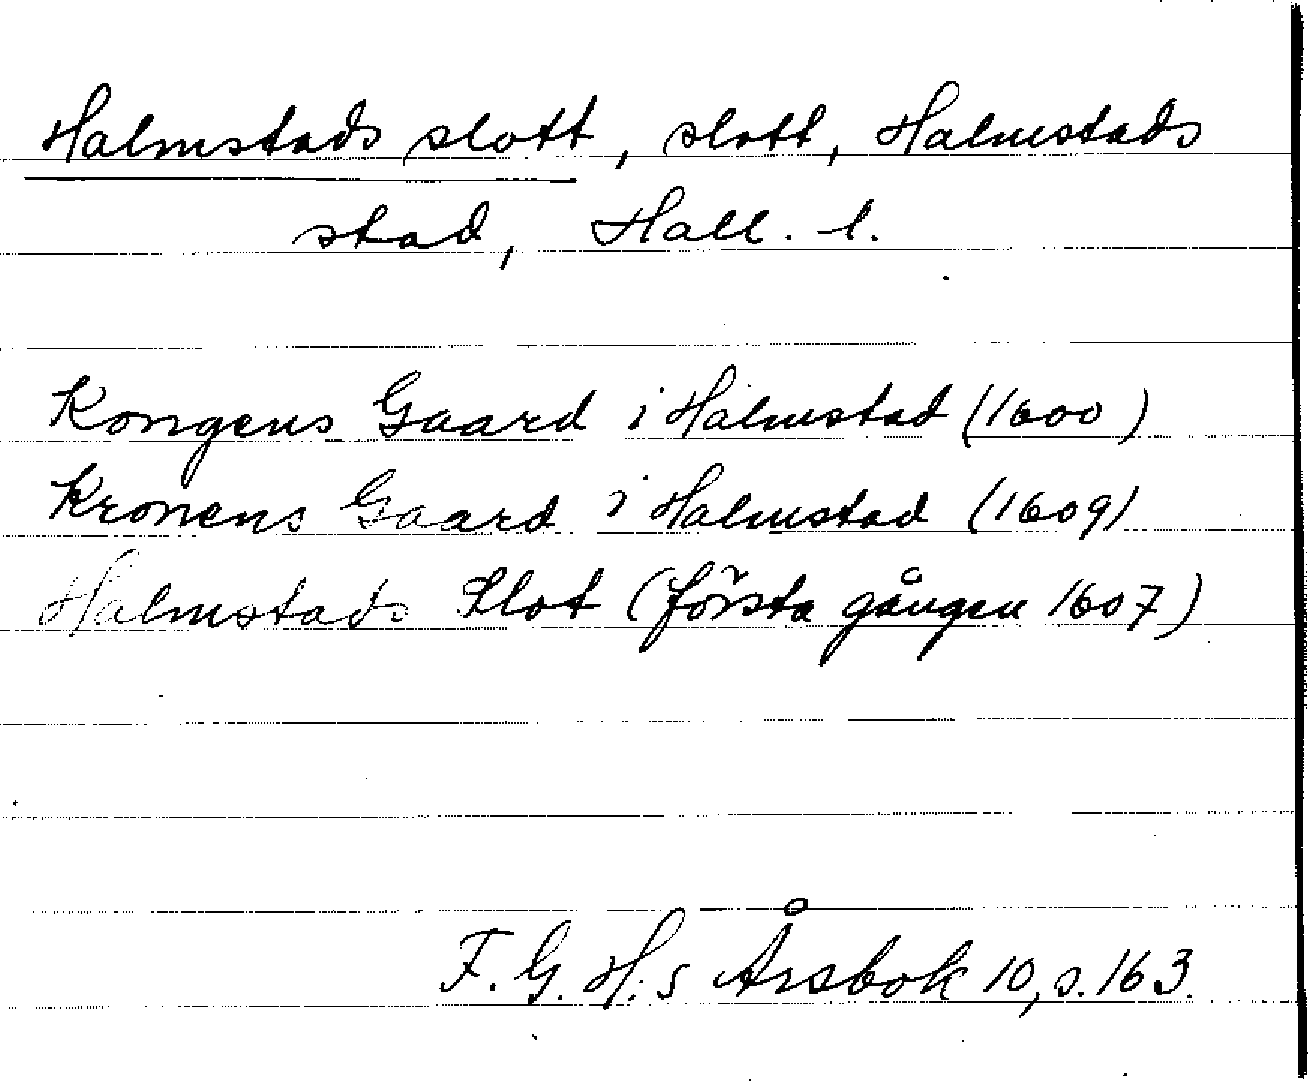 Halmstads slott, slott, Halmstads
stad, Hall. l.
Kongens Gaard i Halmstad (1600)
Kronens Gaard i Halmstad (1609)
Halmstads Slot (första gången 1607)
F. G. H:s Årsbok 10, s. 163.